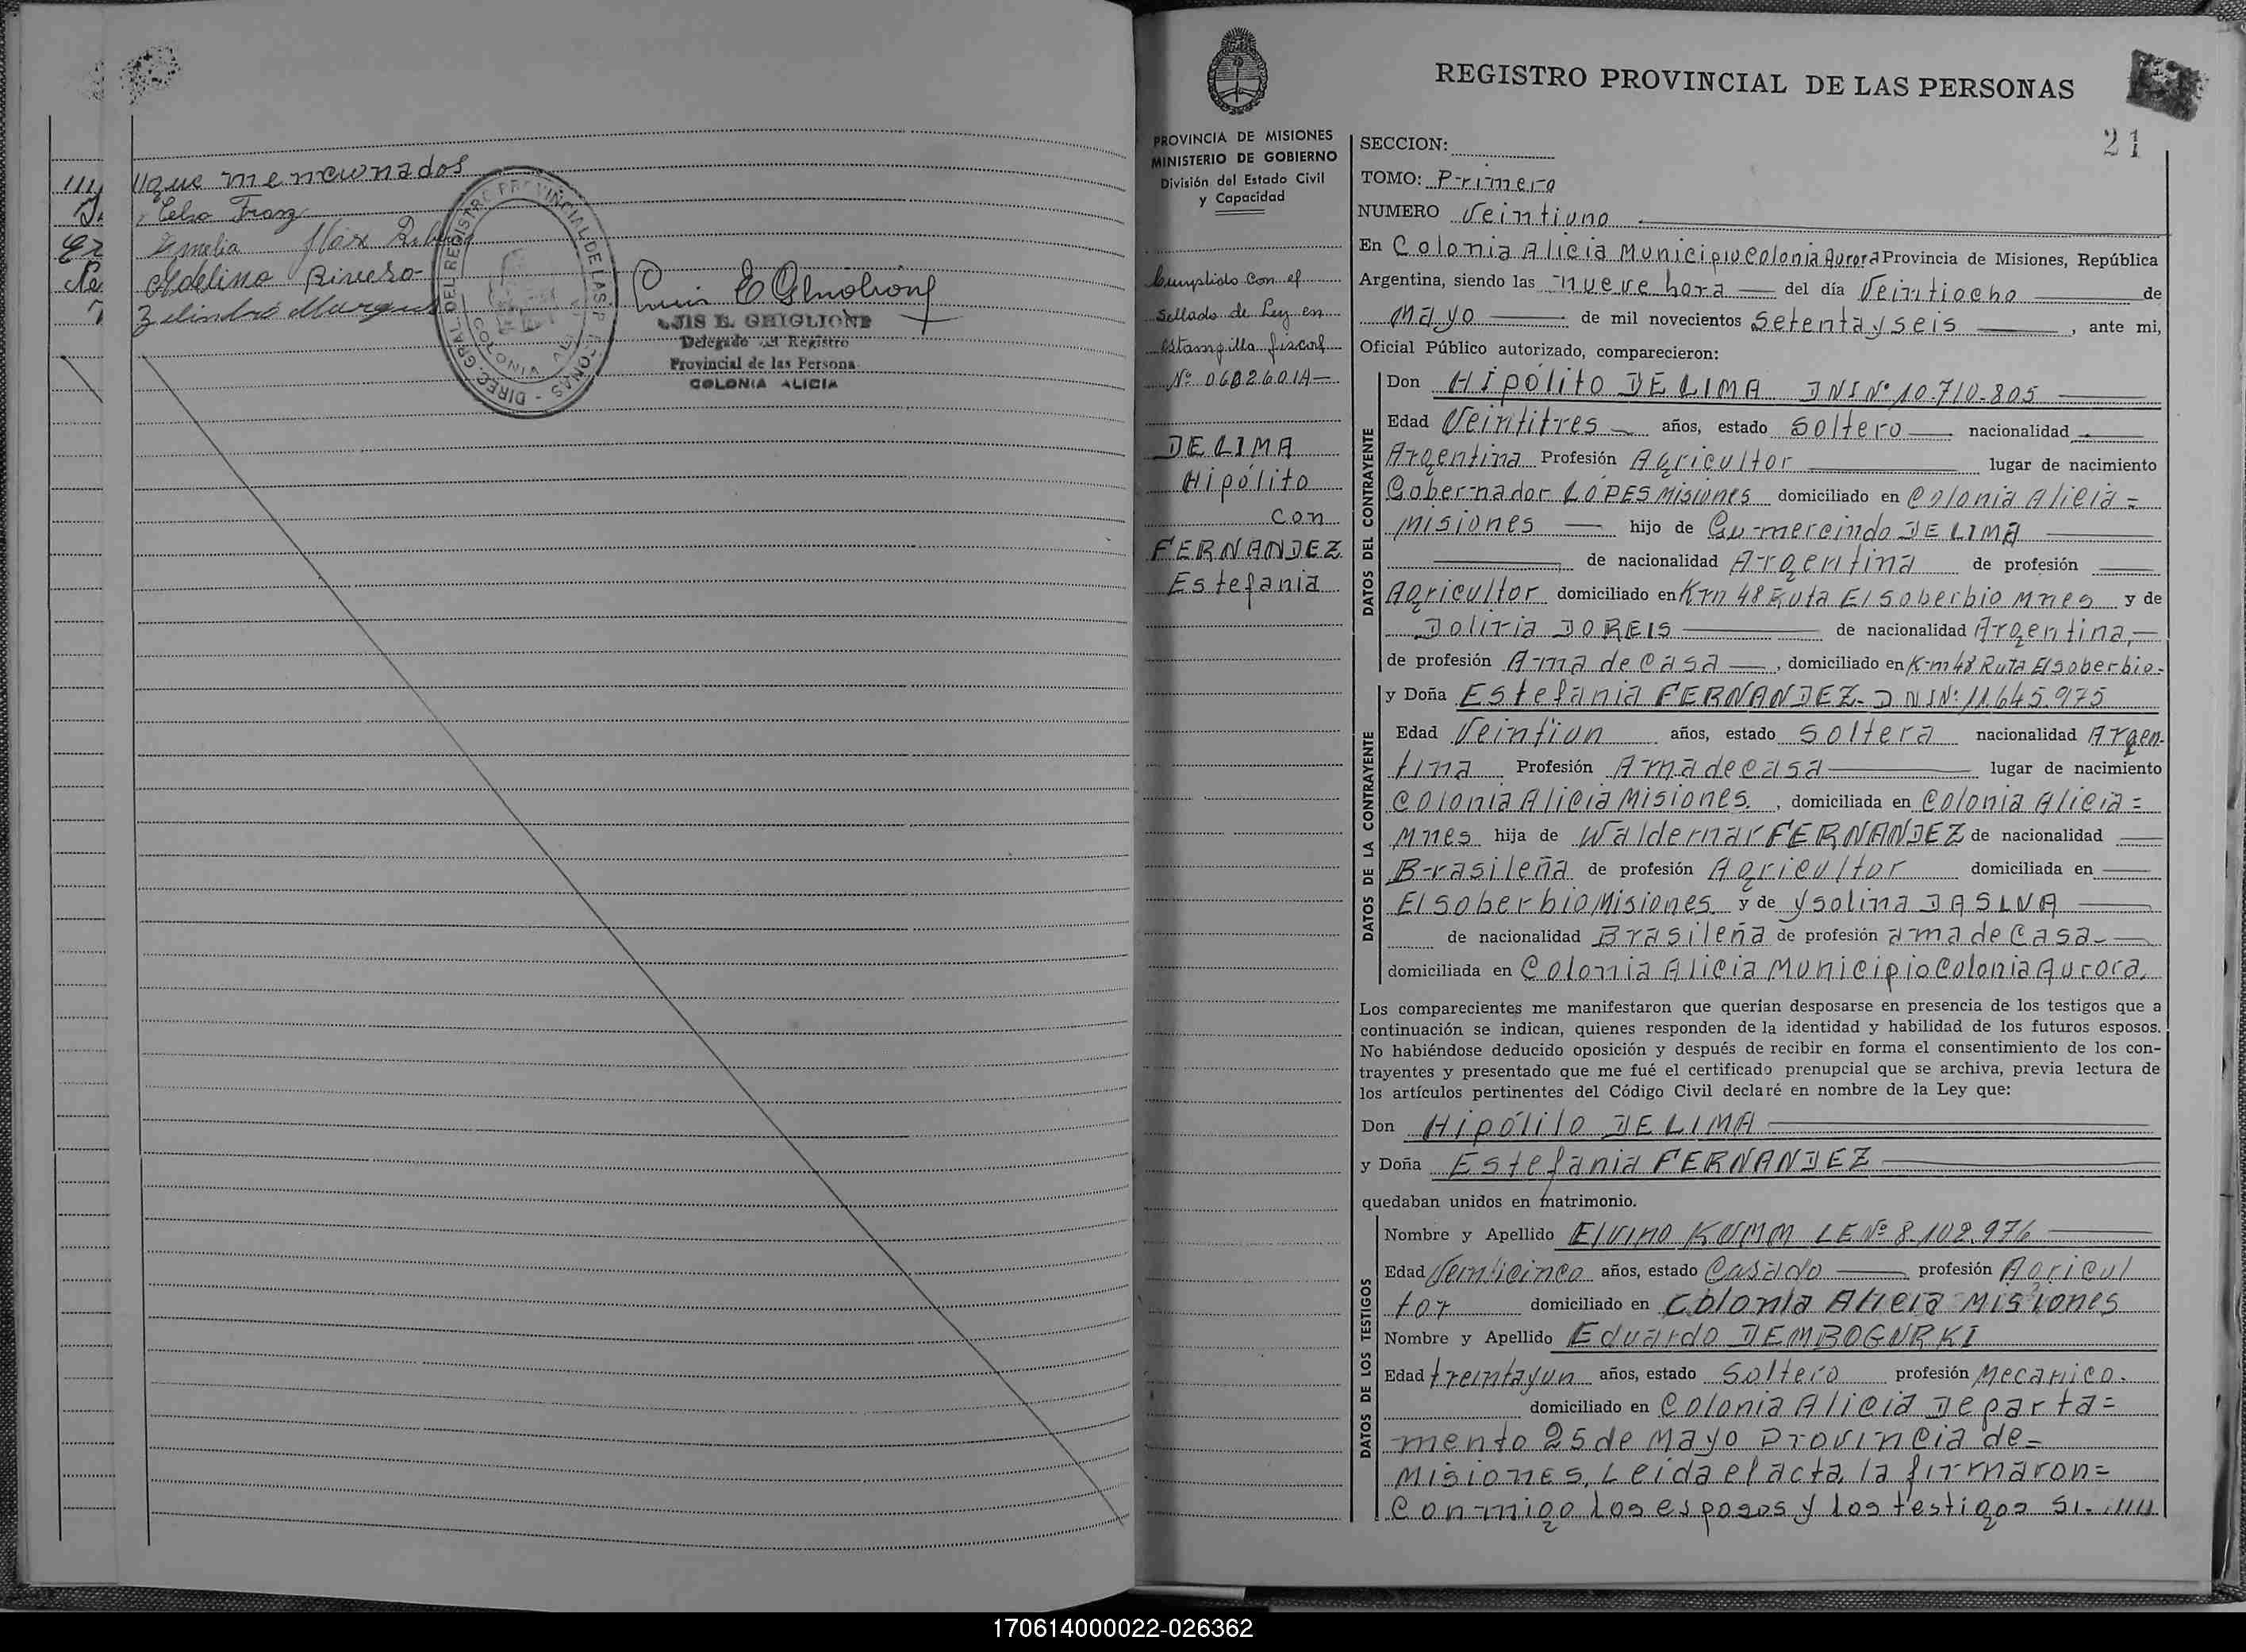 que mencionados
Celso Franz
Emelia
Adelino Rivero
LUIS E. GHIGLIONE
Delegado del Registro
Provincial de las Persona
COLONIA ALICIA
REGISTRO PROVINCIAL DE LAS PERSONAS
21
PROVINCIA DE MISIONES
MINISTERIO DE GOBIERNO
División del Estado Civil
y Capacidad
Cumplido con el
Sellado de Ley en
estampilla fiscal
DE LIMA
Hipólito
con
FERNANDEZ
Estefania
SECCION:
TOMO: Primero
NUMERO Veintiuno
En Colonia Alicia Municipio Colonia Aurora Provincia de Misiones, República
Argentina, siendo las nueve hora del día Veintiocho de
Mayo de mil novecientos Setenta y seis, ante mi,
Oficial Público autorizado, comparecieron:
DATOS DEL CONTRAYENTE
Don Hipólito DE LIMA DNI Nº 10.710.805
Edad Veintitres años, estado Soltero nacionalidad
Argentina Profesión Agricultor lugar de nacimiento
Gobernador LÓPES Misiones domiciliado en Colonia Alicia =
Misiones hijo de Gumercindo DE LIMA
de nacionalidad Argentina de profesión
Agricultor domiciliado en Km 48 Ruta El Soberbio Mnes y de
DOREIS de nacionalidad Argentina,
de profesión Ama de Casa, domiciliado en Km 48 Ruta El Soberbio-
DATOS DE LA CONTRAYENTE
y Doña Estefania FERNANDEZ- DNI Nº: 11.645.975
Edad Veintiun años, estado Soltera nacionalidad Argen-
tina Profesión Ama de casa lugar de nacimiento
Colonia Alicia Misiones., domiciliada en Colonia Alicia =
Mnes hija de Waldemar FERNANDEZ de nacionalidad
Brasileña de profesión Agricultor domiciliada en
El Soberbio Misiones. y de Ysolina DASLVA
de nacionalidad Brasileña de profesión ama de Casa.-
domiciliada en Colonia Alicia Municipio Colonia Aurora.
Los comparecientes me manifestaron que querían desposarse en presencia de los testigos que a
continuación se indican, quienes responden de la identidad y habilidad de los futuros esposos.
No habiéndose deducido oposición y después de recibir en forma el consentimiento de los con-
trayentes y presentado que me fué el certificado prenupcial que se archiva, previa lectura de
los artículos pertinentes del Código Civil declaré en nombre de la Ley que:
Don Hipólilo DE LIMA
y Doña Estefania FERNANDEZ
quedaban unidos en matrimonio.
DATOS DE LOS TESTIGOS
Nombre y Apellido Elvino KUMM LE Nº 8.102.976
Edad Veinticinco años, estado Casado profesión Agricul
tor domiciliado en Colonia Alicia Misiones
Nombre y Apellido Eduardo DEMBOGURKI
Edad treintayun años, estado Soltero profesión Mecanico.
domiciliado en Colonia Alicia Departa=
mento 25 de Mayo Provincia de=
Misiones, Leida el acta, la firmaron=
Conmigo los esposos y los testigos
170614000022-026362